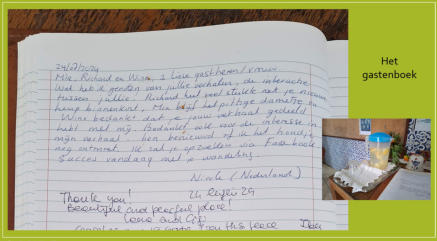 24/07/2024
Mie, Richard en Wina, 2 lieve gastheren/vrouw
Wat heb ik genoten van jullie verhalen, de interactie
tussen jullie. Richard heel veel stukke met je nieuwe
kamp bijenkorst, Mie blijf het pittige dametje en
Wina bedankt dat je jouw verhaal gedeeld
hebt met mij. Bedankt ook voor de interesse in
mijn verhaal. ben benieuwd of ik het hondje
nog ontmoet. Ik zal je opzoeken via Facebook
Succes vandaag met je wandeling
Nicole (Nederland)
Thank you!
Beautiful and peaceful place!
and
this peace
Het
gastenboek